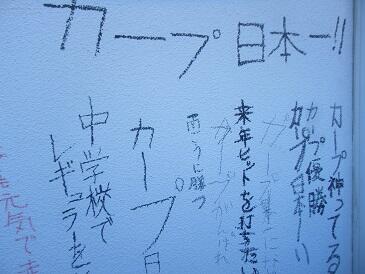 カープ日本一!!
カープ神ってる
カープ優勝
カープ日本一!!
来年ヒットを打ちたい
カープがんばれ
西うに勝つ
カープ日
中学校で
レギュラーを
元気で